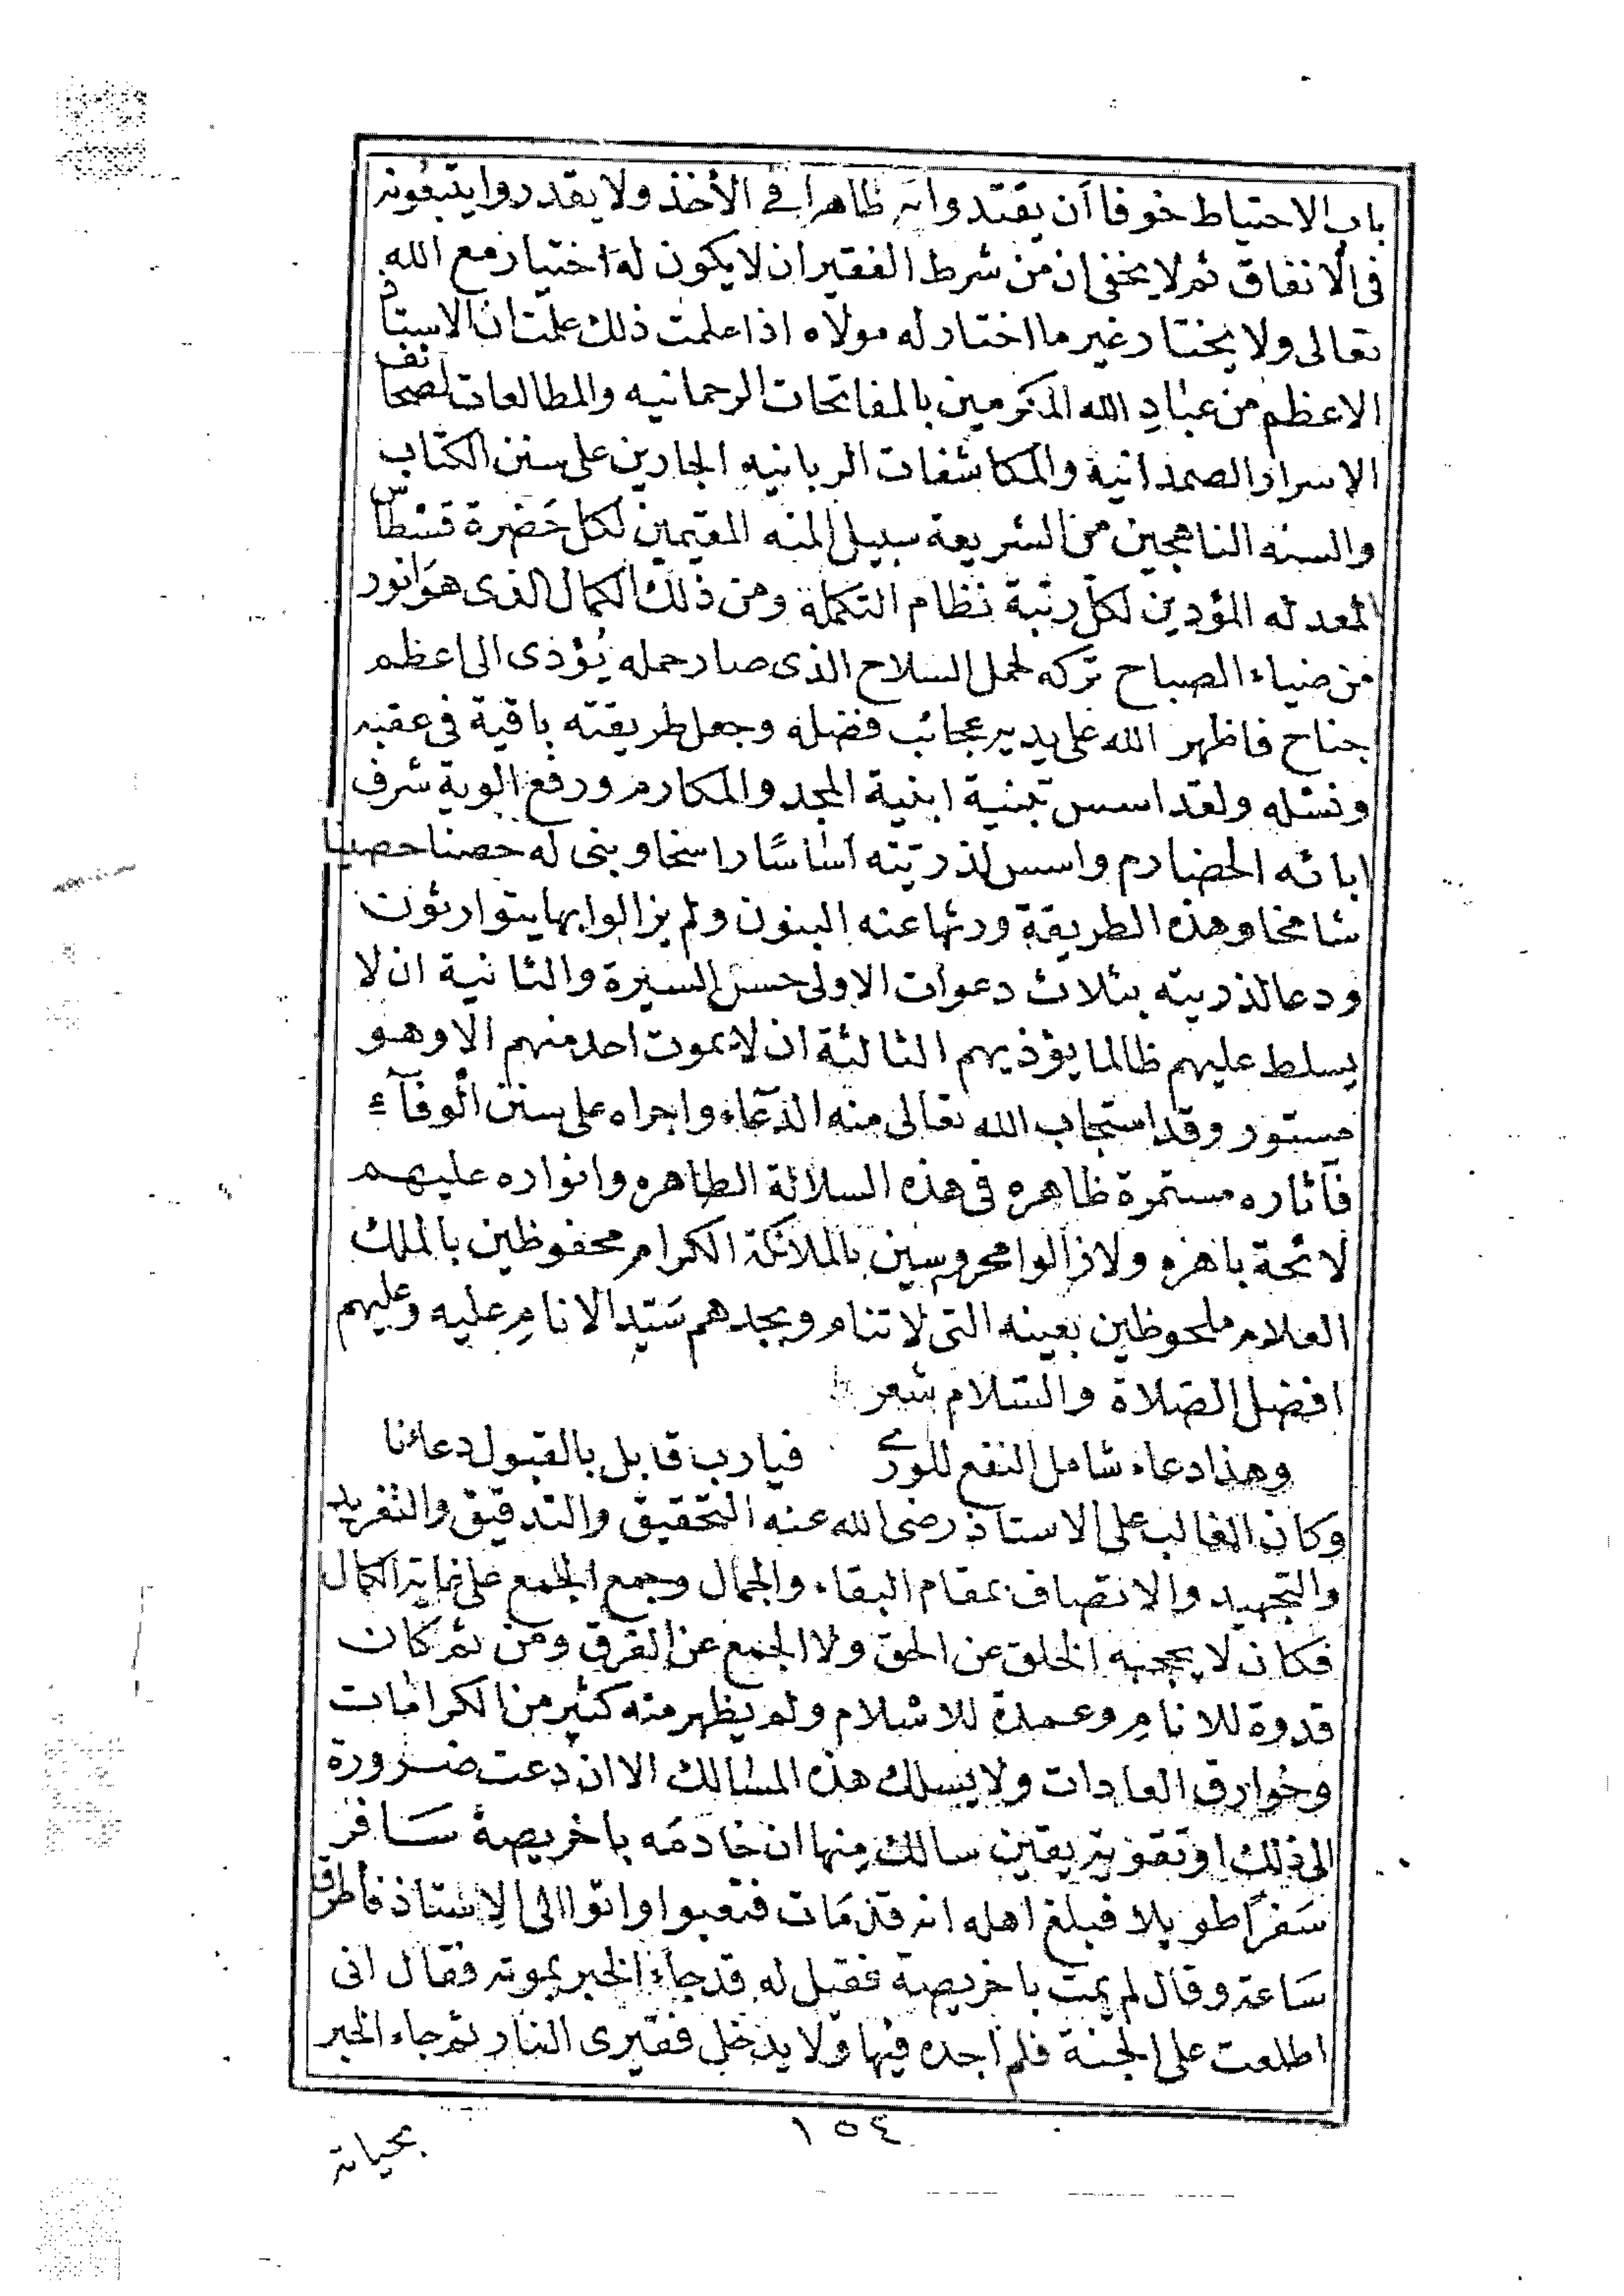 باب الاحتياط خوفا أن يقتدوا به ظاهرا في الأخذ ولا يقدروا يتبعونه
في الانفاق ثم لا يخفى ان من شرط الفقير ان لا يكون له اختيار مع الله
تعالى ولا يختار غير ما اختار له مولاه اذا علمت ذلك علمت ان الاستاذ
الاعظم من عباد الله المكرمين بالمفاتحات الرحمانيه والمطالعات لصحائف
الاسرار الصمدانية والمكاشفات الربانيه الجارين على سنن الكتاب
والسنه الناهجين من الشريعة سبيل المنه المقيمين لكل حضرة قسطاس
المعدله المؤدين لكل رتبة نظام التكملة ومن ذلك الكمال الذى هو انور
من ضياء الصباح تركه لحمل السلاح الذى صار حمله يؤدى الى اعظم
جناح فاظهر الله على يديه عجائب فضله وجعل طريقته باقية في عقبه
ونسله ولقد اسس تبنية ابنية المجد والمكارم ورفع الوية شرف
ابائه الحضارم واسس لذريته اساسا راسخا وبنى له حصنا حصينا
شامخا وهذه الطريقة ورثها عنه البنون ولم يزالوا بها يتوارثون
ودعا لذريته بثلاث دعوات الاولى حسن السيرة والثانية ان لا
يسلط عليهم ظالما يؤذيهم الثالثة ان لا يموت احد منهم الا وهو
مستور وقد استجاب الله تعالى منه الدعاء واجراه على سنن الوفاء
فآثاره مستمرة ظاهره في هذه السلالة الطاهره وانواره عليهم
لائحة باهره ولا زالوا محروسين بالملائكة الكرام محفوظين بالملك
العلام ملحوظين بعينه التى لا تنام وبجدهم سيد الانام عليه وعليهم
افضل الصلاة والسلام شعر
وهذا دعاء شامل النفع للورى فيارب قابل بالقبول دعائنا
وكان الغالب على الاستاذ رضى الله عنه التحقيق والتدقيق والتفريد
والتجهيد والاتصاف بمقام البقاء والجمال وجمع الجمع على نهاية الكمال
فكان لا يحجبه الخلق عن الحق ولا الجمع عن الفرق ومن ثم كان
قدوة للانام وعمدة للاسلام ولم يظهر منه كثير من الكرامات
وخوارق العادات ولا يسلك هذه المسالك الا ان دعت ضرورة
الى ذلك او تقوية يقين سالك منها ان خادمه باخريصة سافر
سفرا طويلا فبلغ اهله انه قد مات فتعبوا واتوا الى الاستاذ فأطرق
ساعة وقال لم يمت باخريصة فقيل له قد جاء الخبر بموته فقال انى
اطلعت على الجنة فلم اجده فيها ولا يدخل فقيرى النار ثم جاء الخبر
١٥٤
بحياته